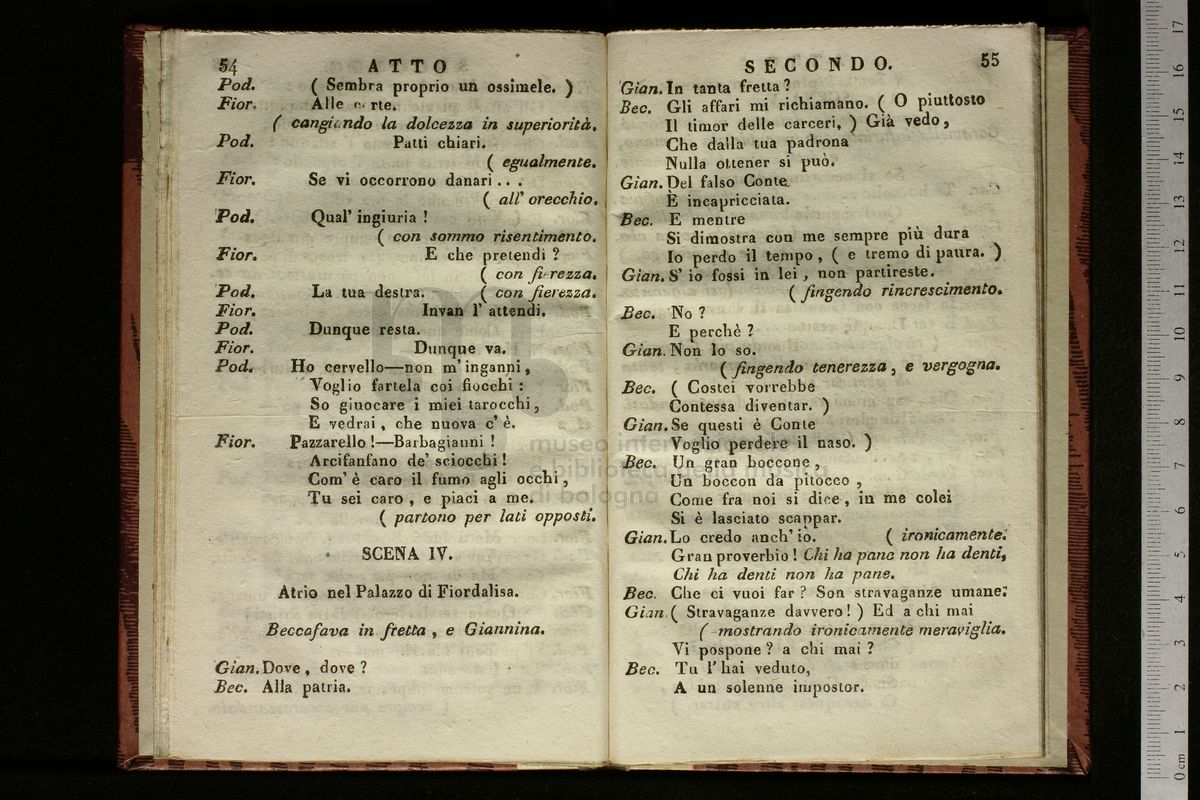 54 ATTO
Pod. ( Sembra proprio un ossimele. )
Fior. Alle c rte.
( cangiando la dolcezza in superiorità.
Pod. Patti chiari.
( egualmente.
Fior. Se vi occorrono danari . . .
( all' orecchio.
Pod. Qual' ingiuria !
( con sommo risentimento.
Fior. E che pretendi ?
( con fierezza.
Pod. La tua destra. ( con fierezza.
Fior. Invan l' attendi.
Pod. Dunque resta.
Fior. Dunque va.
Pod. Ho cervello—non m' inganni,
Voglio fartela coi fiocchi :
So giuocare i miei tarocchi,
E vedrai, che nuova c' è.
Fior. Pazzarello !—Barbagianni !
Arcifanfano de' sciocchi !
Com' è caro il fumo agli occhi,
Tu sei caro, e piaci a me.
( partono per lati opposti.
SCENA IV.
Atrio nel Palazzo di Fiordalisa.
Beccafava in fretta, e Giannina.
Gian. Dove, dove ?
Bec. Alla patria.
SECONDO. 55
Gian. In tanta fretta ?
Bec. Gli affari mi richiamano. ( O piuttosto
Il timor delle carceri, ) Già vedo,
Che dalla tua padrona
Nulla ottener si può.
Gian. Del falso Conte
È incapricciata.
Bec. E mentre
Si dimostra con me sempre più dura
Io perdo il tempo, ( e tremo di paura. )
Gian. S' io fossi in lei, non partireste.
( fingendo rincrescimento.
Bec. No ?
E perchè ?
Gian. Non lo so.
( fingendo tenerezza, e vergogna.
Bec. ( Costei vorrebbe
Contessa diventar. )
Gian. Se questi è Conte
Voglio perdere il naso. )
Bec. Un gran boccone,
Un boccon da pitocco,
Come fra noi si dice, in me colei
Si è lasciato scappar.
Gian. Lo credo anch' io. ( ironicamente.
Gran proverbio ! Chi ha pane non ha denti,
Chi ha denti non ha pane.
Bec. Che ci vuoi far ? Son stravaganze umane.
Gian. ( Stravaganze davvero ! ) Ed a chi mai
( mostrando ironicamente meraviglia.
Vi pospone ? a chi mai ?
Bec. Tu l' hai veduto,
A un solenne impostor.
museo inter
e biblioteca della musica
di bologna
0 cm 1 2 3 4 5 6 7 8 9 10 11 12 13 14 15 16 17